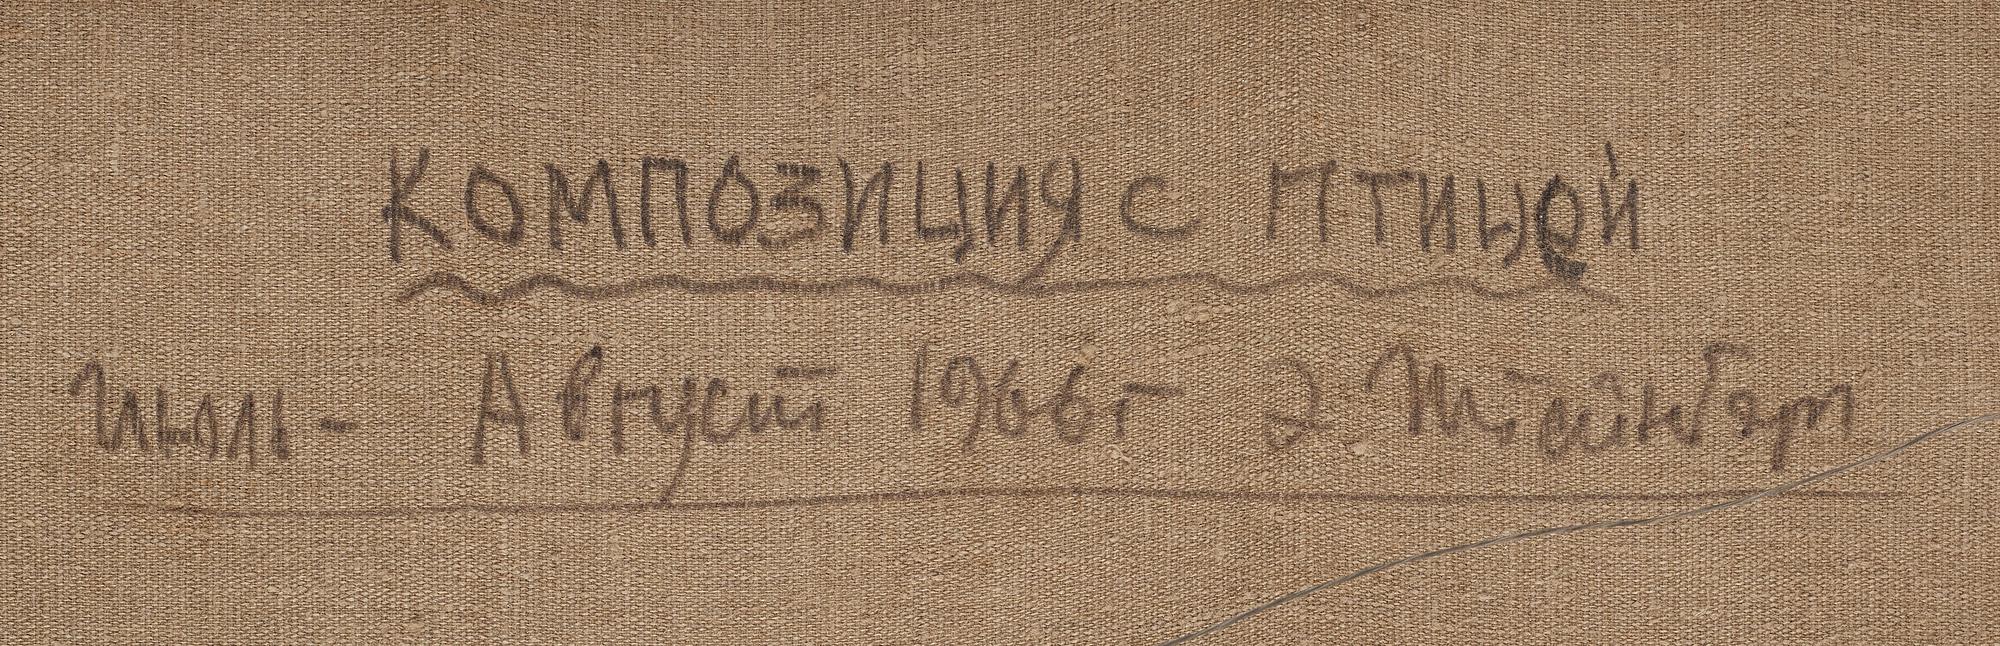 КОМПОЗИЦИЯ С ПТИЦОЙ
Июль - Август 1966г Э. Штейнберг